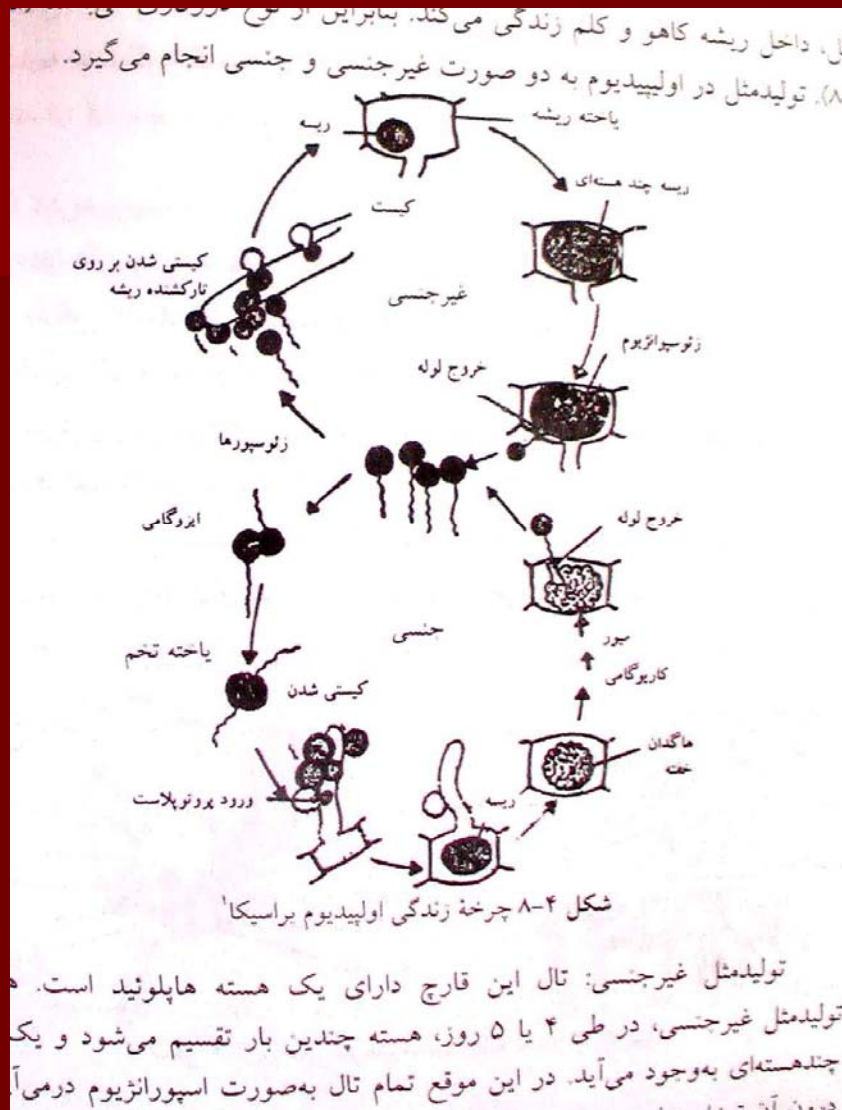 ل، داخل ریشه کاهو و کلم زندگی می‌کند. بنابراین از نوع
۸). تولیدمثل در اولیپیدیوم به دو صورت غیرجنسی و جنسی انجام می‌گیرد.
یاخته ریشه
ریسه
ریسه چند هسته‌ای
کیست
کیستی شدن بر روی
تارکشنده ریشه
غیرجنسی
زئوسپوانژیوم
خروج لوله
زئوسپورها
ایزوگامی
خروج لوله
جنسی
یاخته تخم
میور
کاریوگامی
کیستی شدن
هاگدان
خفته
ریسه
ورود پروتوپلاست
شکل ۴-۸ چرخهٔ زندگی اولپیدیوم براسیکا۱
تولیدمثل غیرجنسی: تال این قارچ دارای یک هسته هاپلوئید است.
تولیدمثل غیرجنسی، در طی ۴ یا ۵ روز، هسته چندین بار تقسیم می‌شود و یک
چندهسته‌ای به‌وجود می‌آید. در این موقع تمام تال به‌صورت اسپورانژیوم درمی‌آ